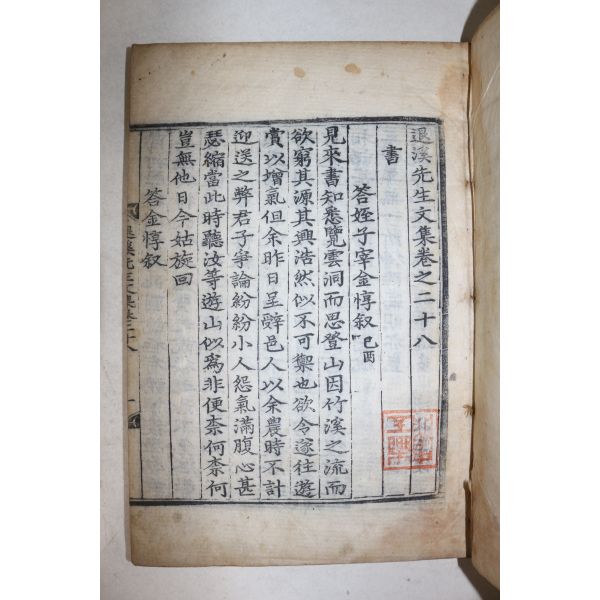 退溪先生文集卷之二十八
書
答姪子宰金惇叙 己酉
見來書知悉覽雲洞而思登山因竹溪之流而
欲窮其源其興浩然似不可禦也欲令遂往遊
賞以增氣但余昨日呈辭邑人以余農時不計
迎送之弊君子爭論紛紛小人怨氣滿腹心甚
瑟縮當此時聽汝等遊山似爲非便柰何柰何
豈無他日今姑旋回
答金惇叙
退溪先生文集卷二十八
一